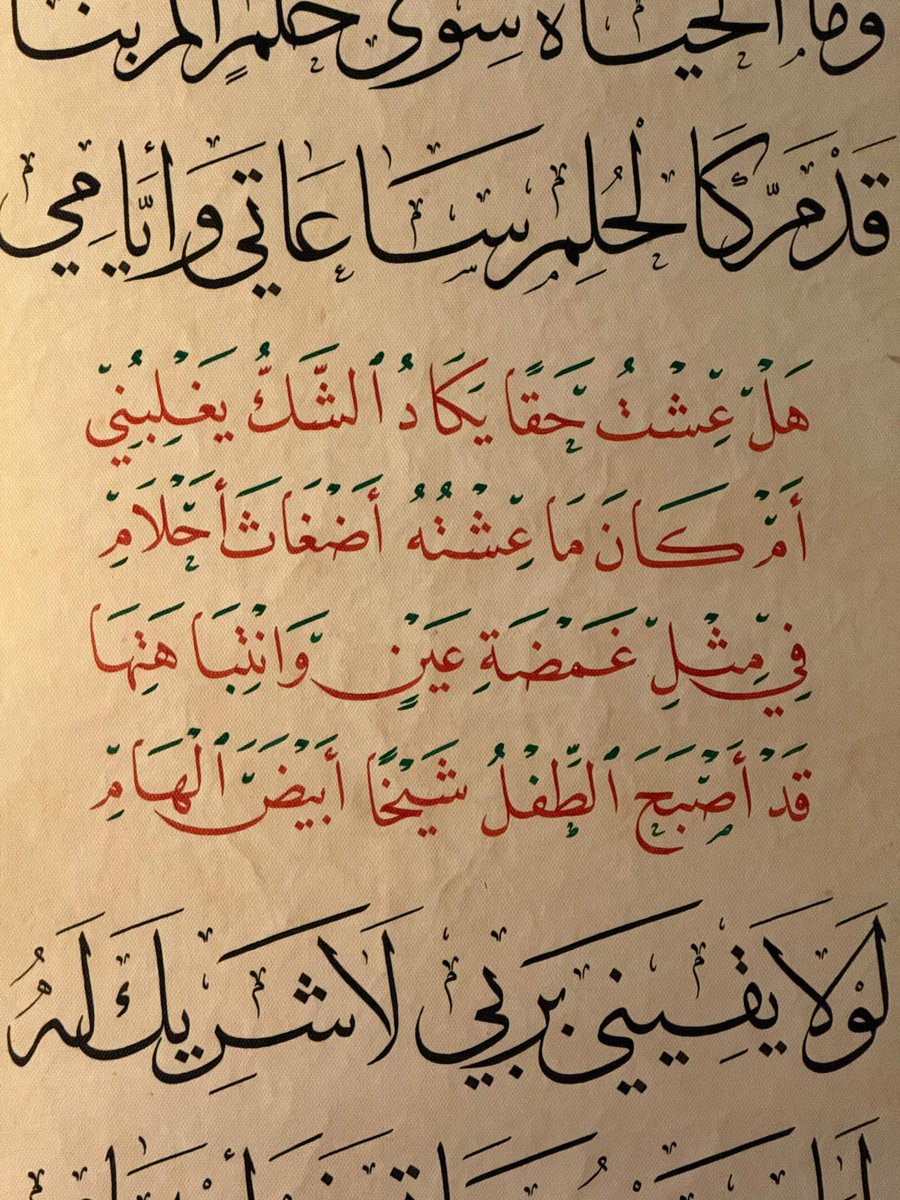 وما الحياة سوى حلم ألم بنا
قَدْ مَرَّ كَالحُلِمِ سَاعَاتي وَأَيَّامِي
هَلْ عِشْتُ حَقًا يَكَادُ ٱلشَّكُّ يَغْلِبُنِي
أَمْ كَانَ مَا عِشْتُهُ أَضْغَاثَ أَحْلَامِ
فِي مِثْلِ غَمْضَةِ عَيْنٍ وَانْتِبَاهَتِهَا
قَدْ أَصْبَحَ ٱلطِّفْلُ شَيْخًا أَبْيَضَ ٱلْهَامِ
لَوْلَا يَقِيني بِرَبي لَا شَرِيكَ لَهُ